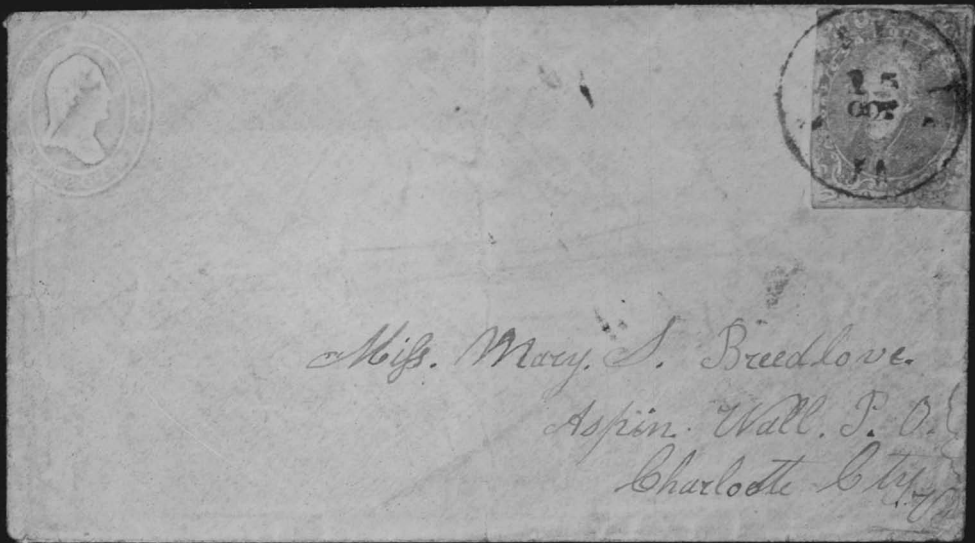 Miss. Mary. S. Breedlove.
Aspin. Wall. P. O.
Charlotte Cty. Va